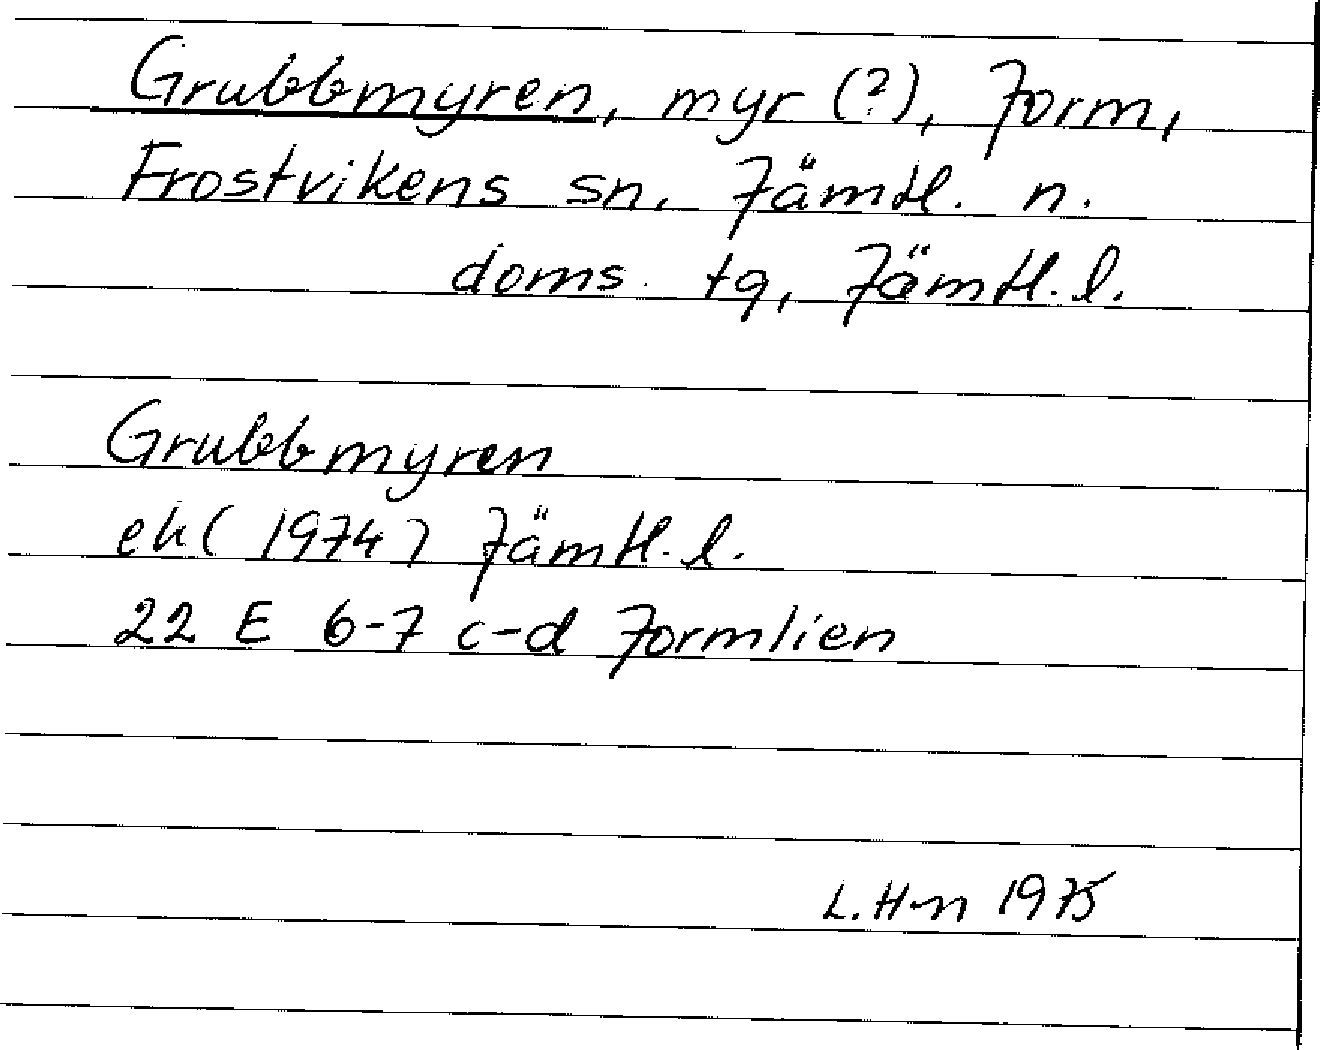 Grubbmyren, myr (?), Jorm,
Frostvikens sn. Jämtl. n.
doms. tg, Jämtl. l.
Grubbmyren
ek (1974) Jämtl. l.
22 E 6-7 c-d Jormlien
L. H-n 1975